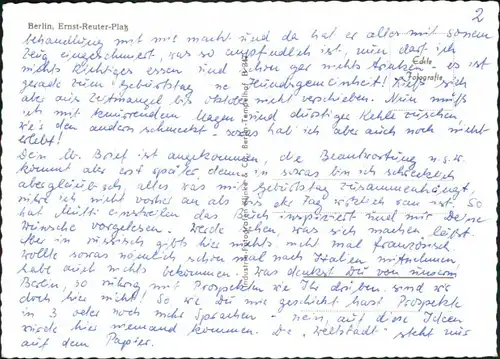 Berlin, Ernst-Reuter-Platz
2
behandlung mit mir macht und da hat er alles mit so'nem
Zeug eingeschmiert, was so empfindlich ist, nun darf ich
nichts richtiges essen und schon gar nichts trinken - es ist
gerade zum Geburtstag ne Hundsgemeinheit! Ließ sich
aber aus Zeitmangel bis nicht verschieben. Nun muß
ich mit knurrendem Magen und durstiger Kehle zusehen,
wie's den andern schmeckt - sowas hat ich aber auch noch nicht
erlebt!
Dein lb. Brief ist angekommen, die Beantwortung u.s.w.
kommt aber erst später, denn in sowas bin ich schrecklich
abergläubisch, alles was mit Geburtstag zusammenhängt,
rühre ich nicht vorher an als bis der Tag wirklich ran ist. So
hat Mutti einstweilen das Buch inspiziert und mir Deine
Wünsche vorgelesen. Werde sehen, was sich machen läßt.
Aber in russisch gibts hier nichts, nicht mal französisch
wollte sowas nämlich schon mal nach Italien mitnehmen,
habe auch nichts bekommen. Was denkst Du von unserm
Berlin, so rührig mit Prospekten wie Ihr drüben sind wir
doch hier nicht! So wie Du mir geschickt hast Prospekte
in 3 oder noch mehr Sprachen - nein, auf diese Ideen
würde hier niemand kommen. Die "Weltstadt" steht nur
auf dem Papier.
Echte
Fotografie
Industrie-Fotografen Klinke & Co., Berlin-Tempelhof